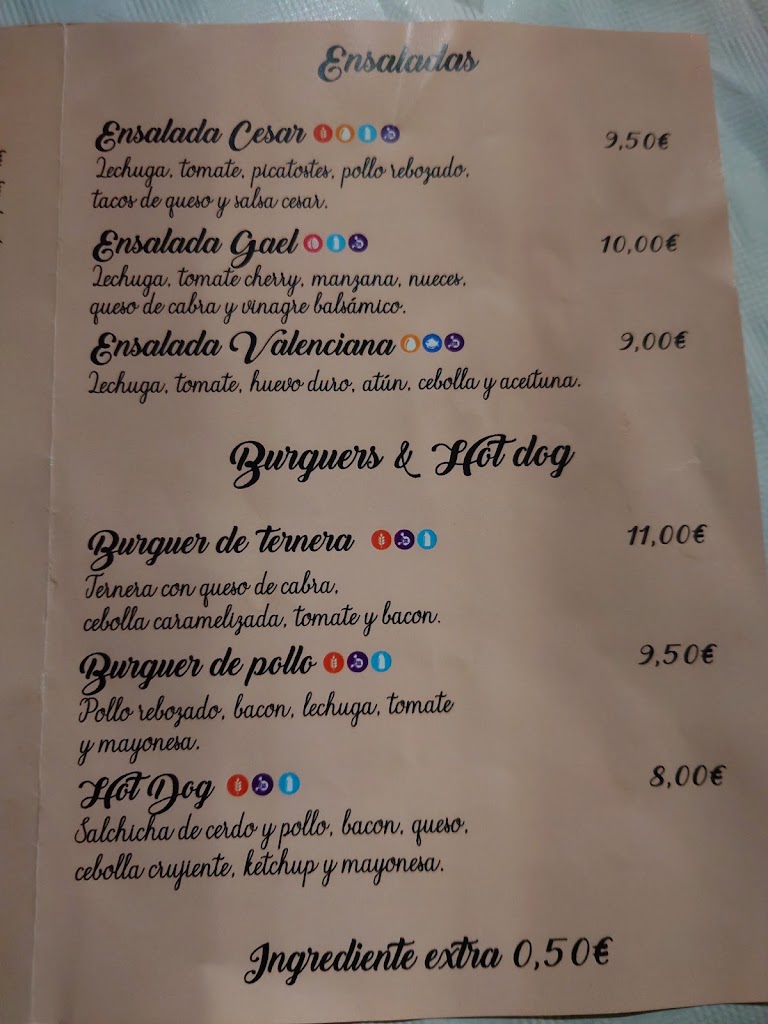 Ensaladas
Ensalada Cesar 9,50€
Lechuga, tomate, picatostes, pollo rebozado,
tacos de queso y salsa cesar.
Ensalada Gael 10,00€
Lechuga, tomate cherry, manzana, nueces,
queso de cabra y vinagre balsámico.
Ensalada Valenciana 9,00€
Lechuga, tomate, huevo duro, atún, cebolla y aceituna.
Burguers & Hot dog
Burguer de ternera 11,00€
Ternera con queso de cabra,
cebolla caramelizada, tomate y bacon.
Burguer de pollo 9,50€
Pollo rebozado, bacon, lechuga, tomate
y mayonesa.
Hot Dog 8,00€
Salchicha de cerdo y pollo, bacon, queso,
cebolla crujiente, ketchup y mayonesa.
Ingrediente extra 0,50€